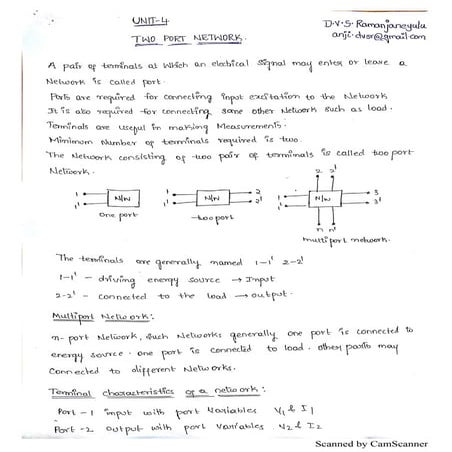 UNIT-4
D.V.S. Ramanjaneyulu
TWO PORT NETWORK.
anji.dvsr@gmail.com
A pair of terminals at which an electrical signal may enter or leave a
Network is called port.
Ports are required for connecting input excitation to the Network
It is also required for connecting some other Network such as load.
Terminals are useful in making Measurements.
Minimum Number of terminals required is two.
The Network consisting of two pair of terminals is called two port
Network.
1 1' N/W
one port
1 1' N/W 2 2'
two port
2 2'
1 1' N/W 3 3'
n n'
multi port network.
The terminals are generally named 1-1' 2-2'
1-1' - driving, energy source → Input
2-2' - connected to the load → output.
Multiport Network:
n-port Network, such Networks generally one port is connected to
energy source. one port is connected to load. other ports may
connected to different Networks.
Terminal characteristics of a network:
Port-1 input with port Variables V1 & I1
Port-2 output with port Variables V2 & I2
Scanned by CamScanner